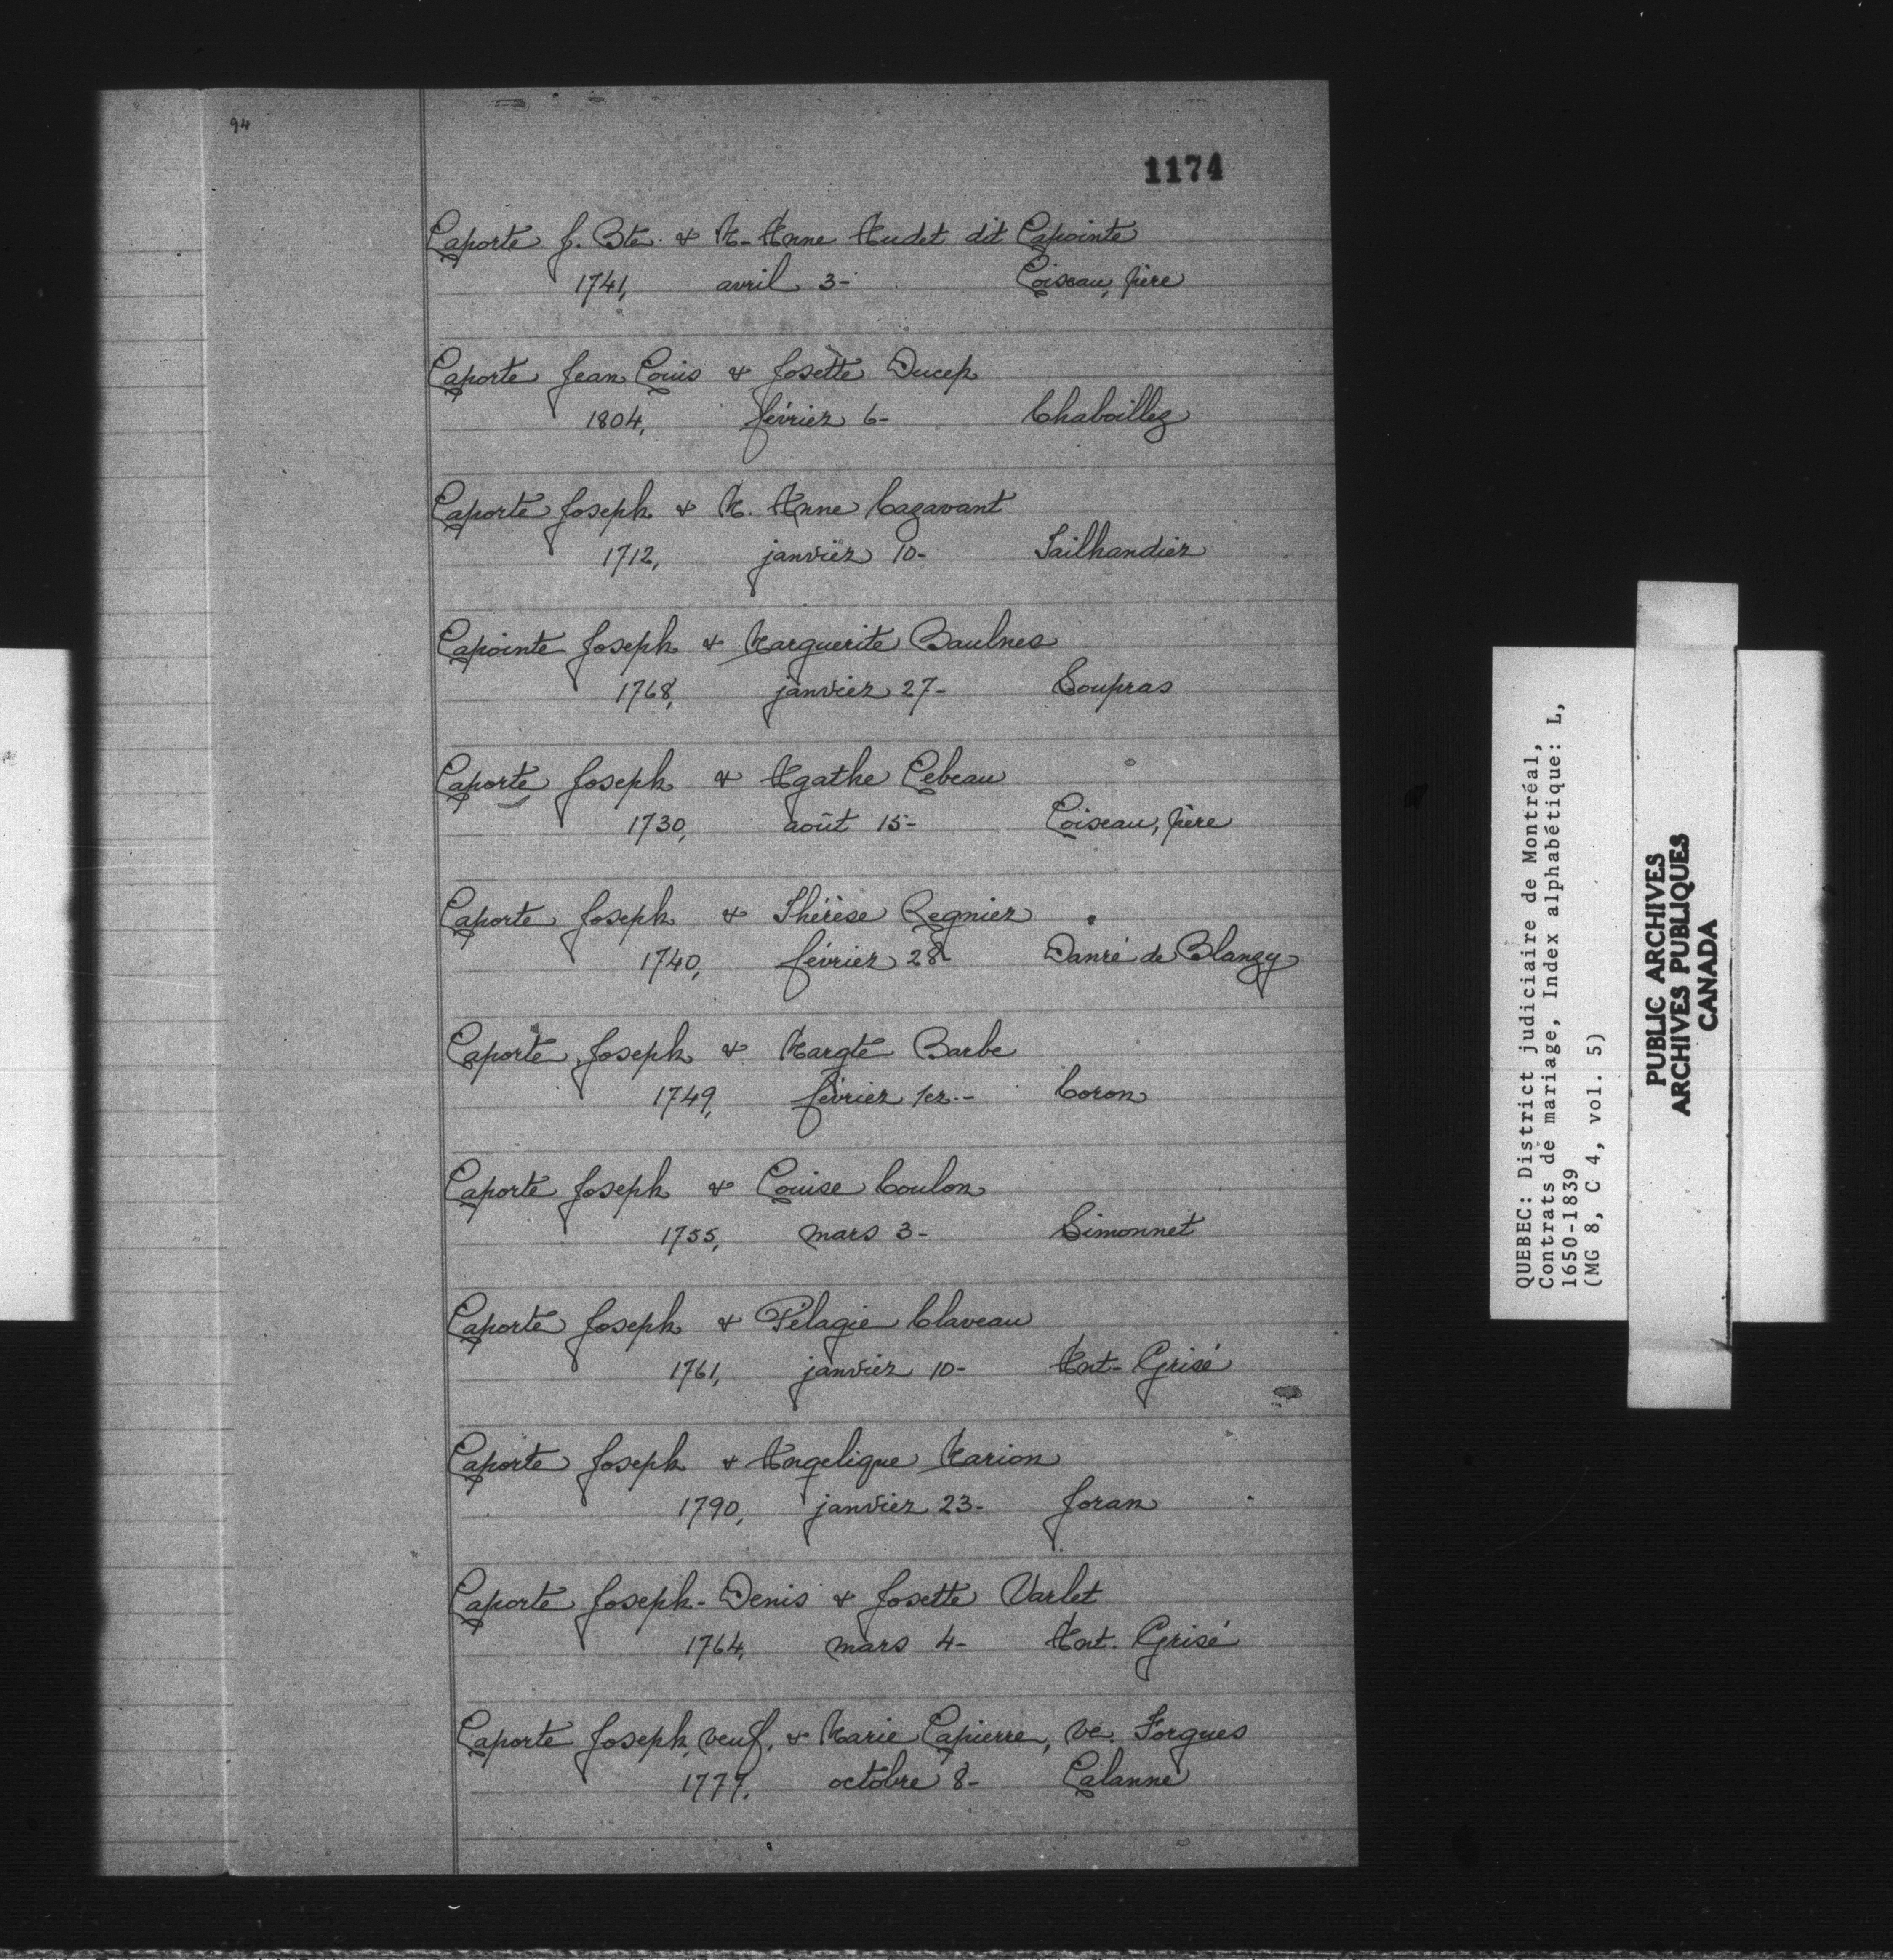 94
1174
Laporte J. Bte. & M. Anne Audet dit Lapointe
1741, avril 3- Loiseau, père
Laporte Jean Louis & Josette Ducep
1804, février 6- Chaboillez
Laporte Joseph & M. Anne Cazavant
1712, janvier 10- Tailhandier
Lapointe Joseph & Marguerite Baulnes
1768, janvier 27- Soupras
Laporte Joseph & Agathe Lebeau
1730, août 15- Loiseau, père
Laporte Joseph & Thérèse Regnier
1740, février 28- Danré de Blanzy
Laporte Joseph & Margte Barbe
1749, février 1er.- Coron
Laporte Joseph & Louise Coulon
1755, mars 3- Simonnet
Laporte Joseph & Pélagie Claveau
1761, janvier 10- Ant- Grisé
Laporte Joseph & Angelique Marion
1790, janvier 23- Joran
Laporte Joseph-Denis & Josette Varlet
1764, mars 4- Ant. Grisé
Laporte Joseph, veuf, & Marie Lapierre, ve. Forgues
1777. octobre 8- Lalanne
QUEBEC: District judiciaire de Montréal,
Contrats de mariage, Index alphabétique: L,
1650-1839
(MG 8, C 4, vol. 5)
PUBLIC ARCHIVES
ARCHIVES PUBLIQUES
CANADA